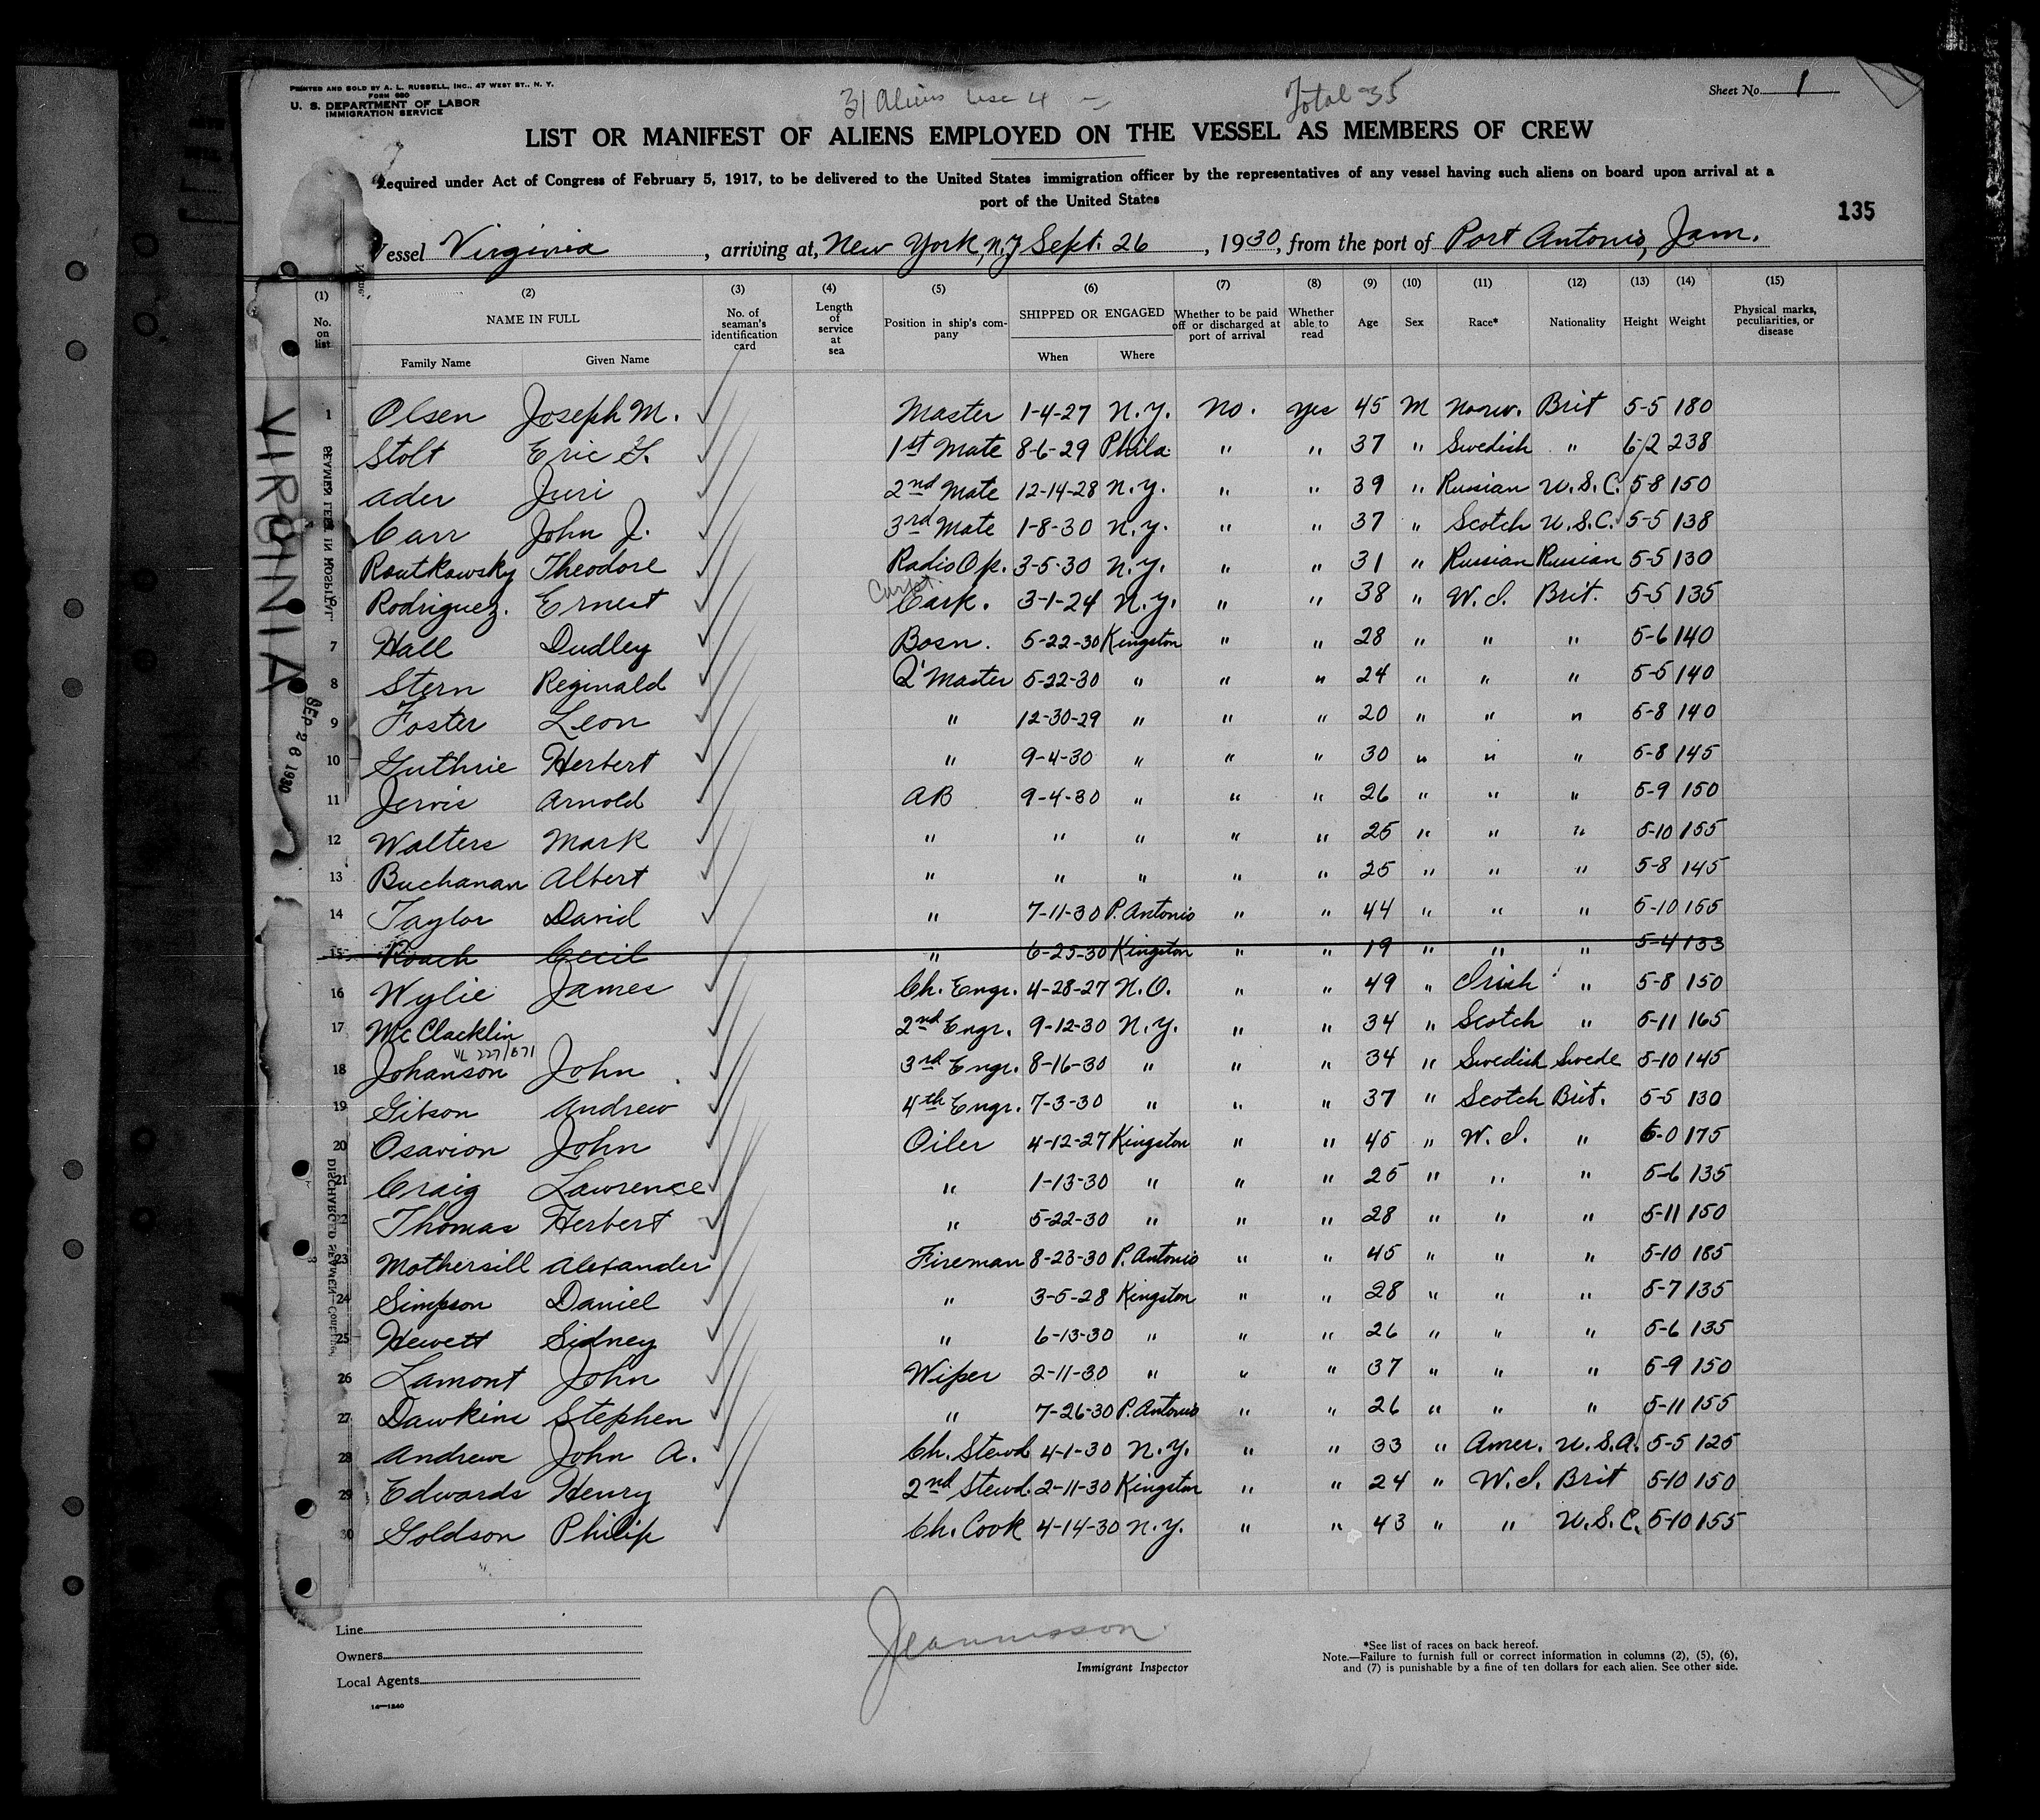 PRINTED AND SOLD BY A. L. RUSSELL, INC., 47 WEST ST., N. Y.
FORM 680
U. S. DEPARTMENT OF LABOR
IMMIGRATION SERVICE
31 Aliens usc 4
Total 35
Sheet No. 1
LIST OR MANIFEST OF ALIENS EMPLOYED ON THE VESSEL AS MEMBERS OF CREW
Required under Act of Congress of February 5, 1917, to be delivered to the United States immigration officer by the representatives of any vessel having such aliens on board upon arrival at a
port of the United States
135
Vessel Virginia, arriving at, New York, N.Y Sept. 26, 1930, from the port of Port Antonio, Jam.
(1) (2) (3) (4) (5) (6) (7) (8) (9) (10) (11) (12) (13) (14) (15)
No. on list NAME IN FULL Family Name Given Name No. of seaman's identification card Length of service at sea Position in ship's company SHIPPED OR ENGAGED When Where Whether to be paid off or discharged at port of arrival Whether able to read Age Sex Race* Nationality Height Weight Physical marks, peculiarities, or disease
1 Olsen Joseph M. Master 1-4-27 N.Y. No. yes 45 M Norw. Brit 5-5 180
Stolt Eric 1st Mate 8-6-29 Phila. " " 37 " Swedish " 6-2 238
Ader Juri 2nd Mate 12-14-28 N.Y. " " 39 " Russian U.S.C. 5-8 150
Carr John J. 3rd Mate 1-8-30 N.Y. " " 37 " Scotch U.S.C. 5-5 138
Routkowsky Theodore Radio Op. 3-5-30 N.Y. " " 31 " Russian Russian 5-5 130
6 Rodriguez. Ernest Carp. 3-1-24 N.Y. " " 38 " W.I. Brit. 5-5 135
7 Hall Dudley Bosn. 5-22-30 Kingston " " 28 " " " 5-6 140
8 Stern Reginald Q'Master 5-22-30 " " " 24 " " " 5-5 140
9 Foster Leon " 12-30-29 " " " 20 " " " 5-8 140
10 Guthrie Herbert " 9-4-30 " " " 30 " " " 5-8 145
11 Jervis Arnold AB 9-4-30 " " " 26 " " " 5-9 150
12 Walters Mark " " " " " 25 " " " 5-10 155
13 Buchanan Albert " " " " " 25 " " " 5-8 145
14 Taylor David " 7-11-30 P. Antonio " " 44 " " " 5-10 155
15 Roach Cecil " 6-25-30 Kingston " " 19 " " " 5-4 133
16 Wylie James Ch. Engr. 4-28-27 N.O. " " 49 " Irish " 5-8 150
17 McClacklin 2nd Engr. 9-12-30 N.Y. " " 34 " Scotch " 5-11 165
VL 227/671
18 Johanson John 3rd Engr. 8-16-30 " " " 34 " Swedish Swede 5-10 145
19 Gibson Andrew 4th Engr. 7-3-30 " " " 37 " Scotch Brit. 5-5 130
20 Osavion John Oiler 4-12-27 Kingston " " 45 " W.I. " 6-0 175
21 Craig Lawrence " 1-13-30 " " " 25 " " " 5-6 135
22 Thomas Herbert " 5-22-30 " " " 28 " " " 5-11 150
23 Mothersill Alexander Fireman 8-23-30 P. Antonio " " 45 " " " 5-10 185
24 Simpson Daniel " 3-5-28 Kingston " " 28 " " " 5-7 135
25 Hewett Sidney " 6-13-30 " " " 26 " " " 5-6 135
26 Lamont John Wiper 2-11-30 " " " 37 " " " 5-9 150
27 Dawkins Stephen " 7-26-30 P. Antonio " " 26 " " " 5-11 155
28 Andrews John A. Ch. Stewd 4-1-30 N.Y. " " 33 " Amer. U.S.A. 5-5 125
29 Edwards Henry 2nd Stewd. 2-11-30 Kingston " " 24 " W.I. Brit 5-10 150
30 Goldson Philip Ch. Cook 4-14-30 N.Y. " " 43 " " U.S.C. 5-10 155
VIRGINIA
SEP 26 1930
SEAMEN LEFT IN HOSPITAL
Line
Owners
Local Agents
Immigrant Inspector
*See list of races on back hereof.
Note.—Failure to furnish full or correct information in columns (2), (5), (6),
and (7) is punishable by a fine of ten dollars for each alien. See other side.
14—1240